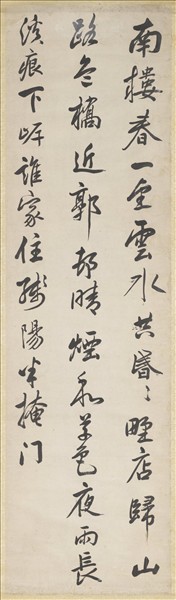 南樓春一望雲水共昏〻野店歸山
路危橋近郭邨晴煙和草色夜雨長
溪痕下岸誰家住殘陽半掩门